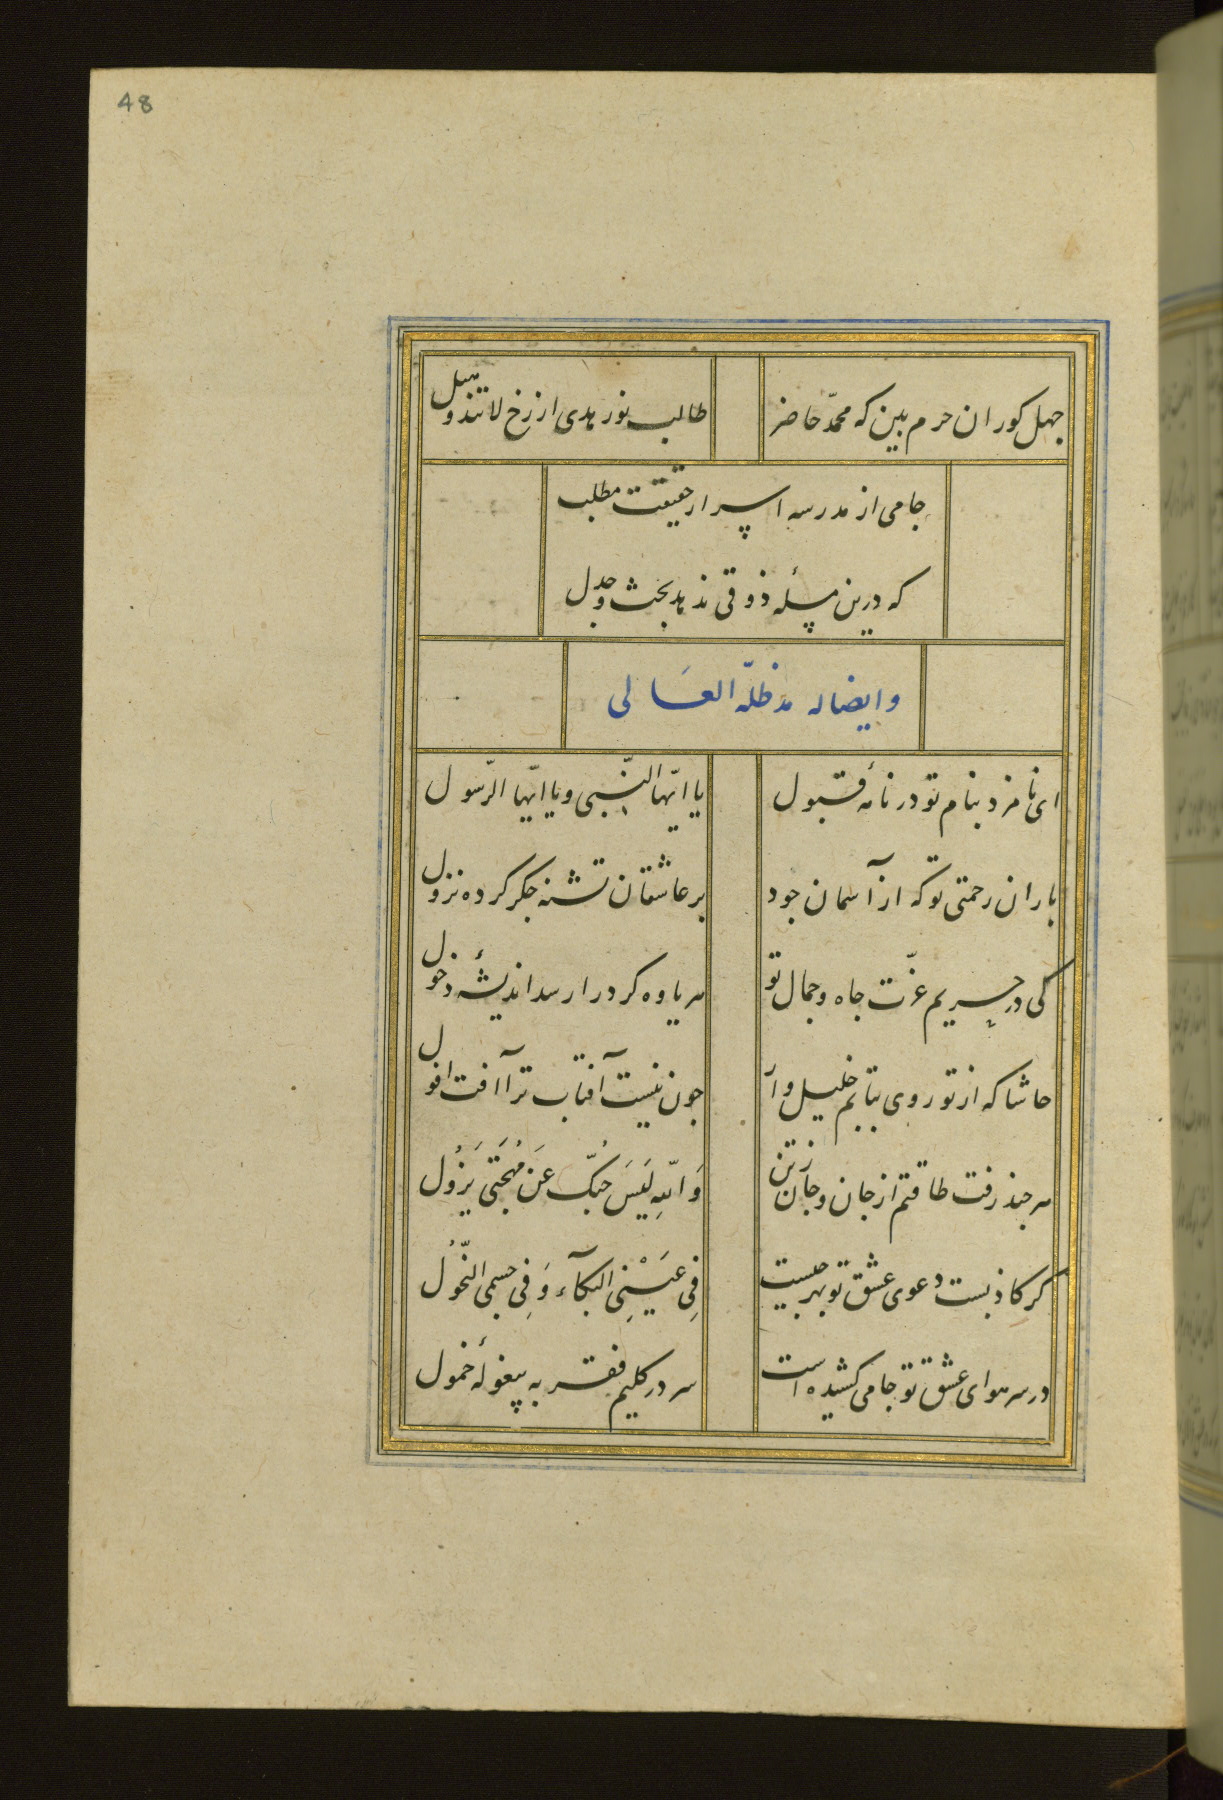 48
جهل کوران حرم بین که محمّد حاضر
طالب نور هدی از رخ لاتند و هبل
جامی از مدرسه اسرار حقیقت مطلب
که درین مسئله ذوقی ندهد بحث و جدل
وایضا له مد ظلّه العَالی
ای نامزد بنام تو در نامهٔ قبول
یا ایّها النّبی و یا ایّها الرّسول
باران رحمتی تو که از آسمان جود
بر عاشقان تشنه جکر کرده نزول
کی در حریم عزّت جاه و جمال تو
هر یاوه کرد را رسد اندیشهٔ دخول
حاشا که از تو روی بتابم خلیل وار
جون نیست آفتاب ترا آفت افول
هر جند رفت طاقتم از جان و جان ز تن
وَاللّهِ لَیسَ حُبّک عَن مُهجَتی یَزُول
کر کاذبست دعوی عشق تو بهر جیست
فِی عَیْنِی البکآء وَفِی جسمی النّحُول
در سر هوای عشق تو جامی کشیده است
سر در کلیم فقر به پیغولهٔ خمول